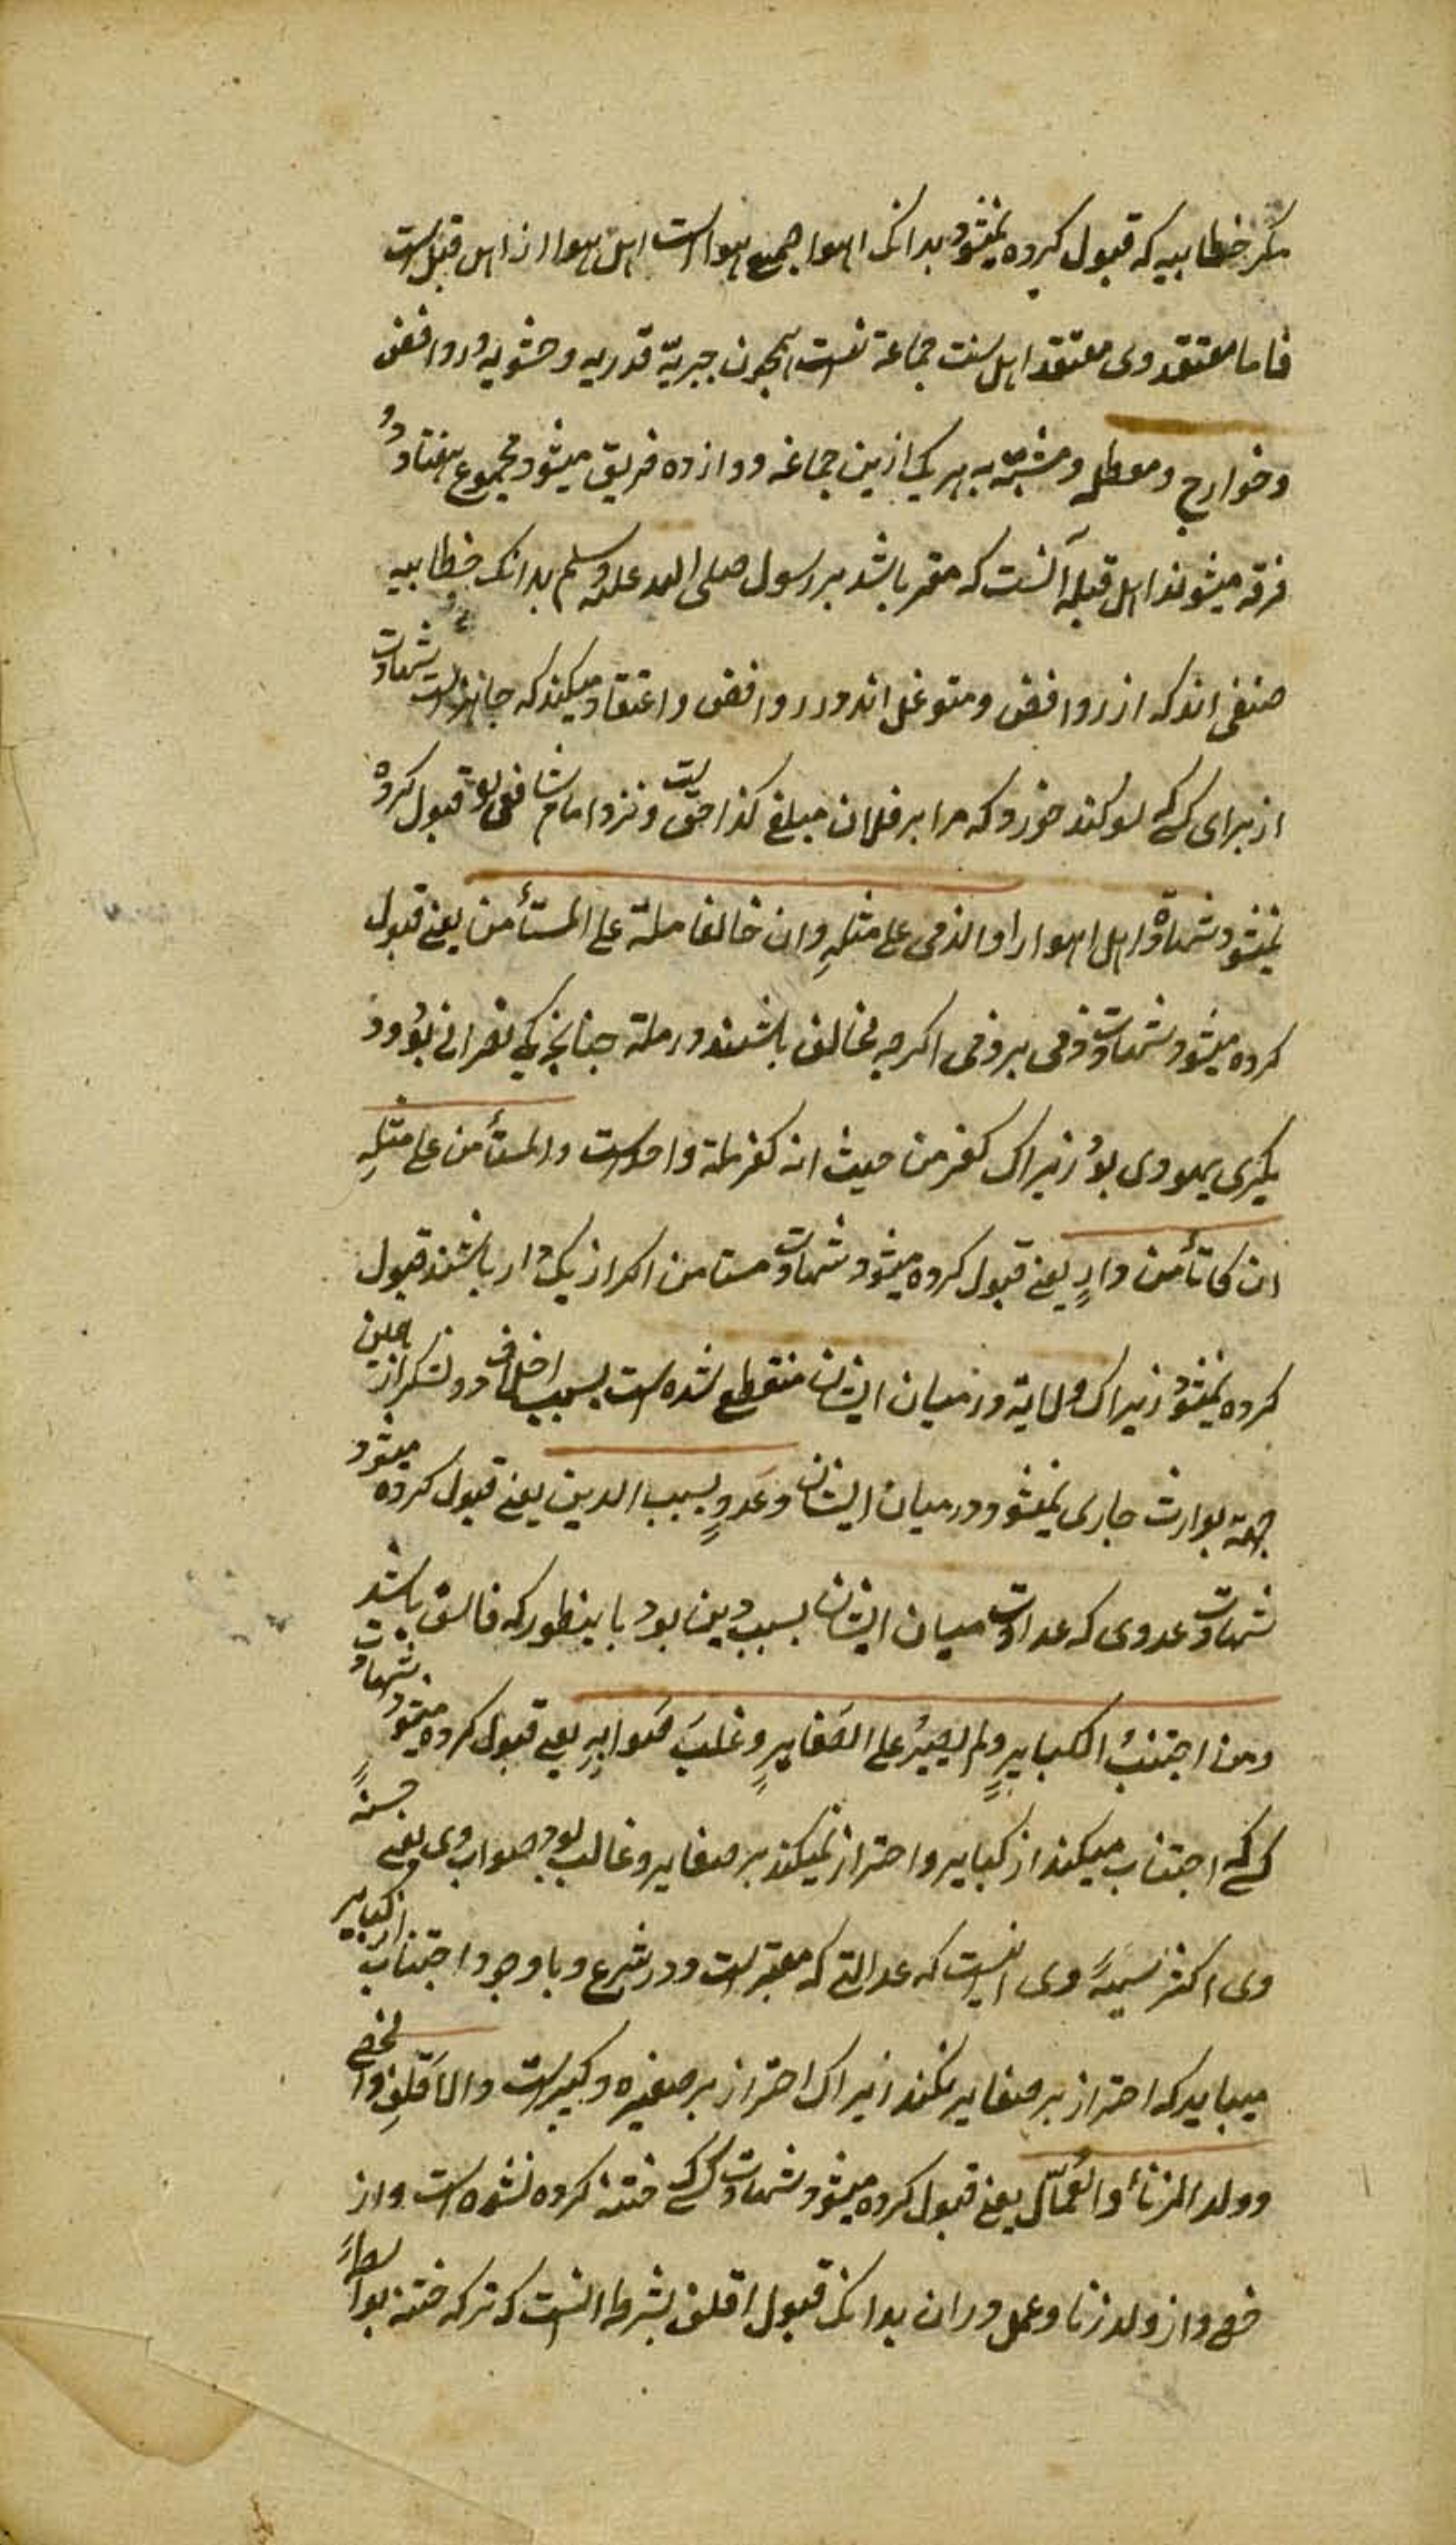 مکر خطابیه که قبول کرده نمیشود بدانک اهوا جمیع هوا است اهل هوا از اهل قبل است
فاما معتقد وی معتقد اهل سنت جماعة نیست همچون جبریّة قدریه و حشویه و روافض
و خوارج و معطله و مشبّهه هر یک ازین جماعة دوازده فریق میشود مجموع هفتاد و
فرقه میشوند اهل قبله آنست که مقر باشد بر رسول صلی الله علیه وسلم بدانک خطابیه
صنفی اند که از روافض و متوغل اند در روافض و اعتقاد میکنند که جایز است شهادت
از برای کسی که سوکند خورد که مرا بر فلان مبلغ کذا حق است و نزد امام شافعی قبول کرده
نمیشود شهادة اهل اهوا را والذمی علی مثلِهِ وان خالفا ملة علی المستأمن یعنی قبول
کرده میشود شهادت ذمی بر ذمی اکرچه مخالف باشند در ملة چنانچه یکی نصرانی بود و
یکیری یهودی بود زیراک کفر من حیث انه کفر ملة واحد است والمستأمن علی مثلِهِ
ان کانا من دارٍ یعنی قبول کرده میشود شهادت مستامن اکر از یک دار باشند قبول
کرده نمیشود زیراک ولایة در میان ایشان منقطع شده است بسبب اختلاف دو لشکر ازین
جهة توارث جاری نمیشود در میان ایشان وعدوٍ بسبب الدین یعنی قبول کرده میشود
شهادت عدوی که عداوت میان ایشان بسبب دین بود باینطور که فاسق باشد
ومن اجتنبُ الکبایرٍ ولم یصرُ علی الصَغایرٍ وغلبَ صَوابِهِ یعنی قبول کرده میشود شهادت
کسی که اجتناب میکند از کبایر و احتراز نمیکند بر صغایر و غالب بود صواب وی یعنی حسنهٔ
وی اکثر سیّئهٔ وی اینست که عدالتی که معتبر است در شرع و باوجود اجتناب از کبایر
میباید که احتراز بر صغایر نکند زیراک احتراز بر صغیره و کبیر است والاقلفِ والخصی
وولد الزنا والعُمّال یعنی قبول کرده میشود شهادت کسی که ختنه کرده نشده است و از
خصی و از ولد زنا و عمل دران بدانک قبول اقلف بشرط انست که ترکه ختنه بواسطهٔ